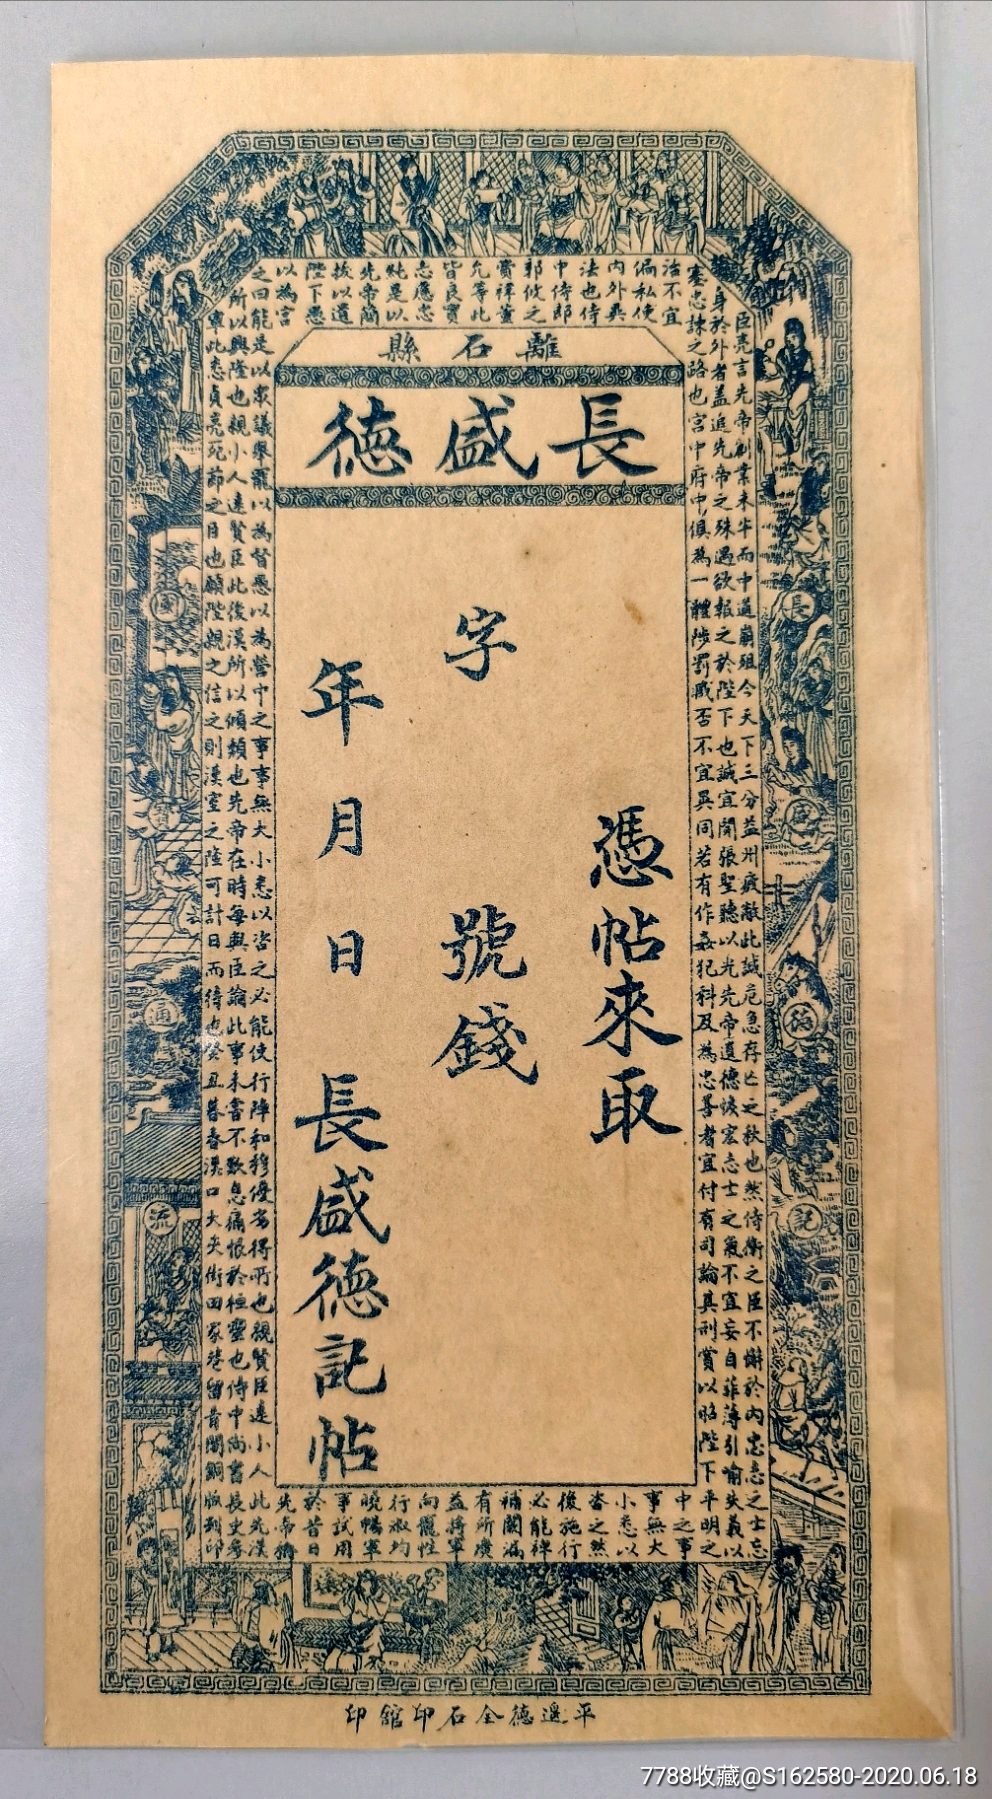 離石縣
長盛德
憑帖來取
字
號錢
年月日
長盛德記帖
長
盛
德
記
國
寶
通
流
臣亮言先帝創業未半而中道崩殂今天下三分益州疲敝此誠危急存亡之秋也然侍衛之臣不懈於內忠志之士忘
身於外者蓋追先帝之殊遇欲報之於陛下也誠宜開張聖聽以光先帝遺德恢宏志士之氣不宜妄自菲薄引喻失義以
塞忠諫之路也宮中府中俱為一體陟罰臧否不宜異同若有作奸犯科及為忠善者宜付有司論其刑賞以昭陛下平明之
治不宜
偏私使
內外異
法也侍
中侍郎
郭攸之
費禕董
允等此
皆良實
志慮忠
純是以
先帝簡
拔以遺
陛下愚
以為宮
中之事
事無大
小悉以
咨之然
後施行
必能裨
補闕漏
有所廣
益將軍
向寵性
行淑均
曉暢軍
事試用
於昔日
先帝稱
之曰能是以眾議舉寵以為督愚以為營中之事事無大小悉以咨之必能使行陣和穆優劣得所也親賢臣遠小人此先漢
所以興隆也親小人遠賢臣此後漢所以傾頹也先帝在時每與臣論此事未嘗不歎息痛恨於桓靈也侍中尚書長史參
軍此悉貞亮死節之臣也願陛親之信之則漢室之隆可計日而待也癸丑暮春漢口大夾街田家巷留青閣銅版刻印
平遙德全石印館印
7788收藏@S162580-2020.06.18